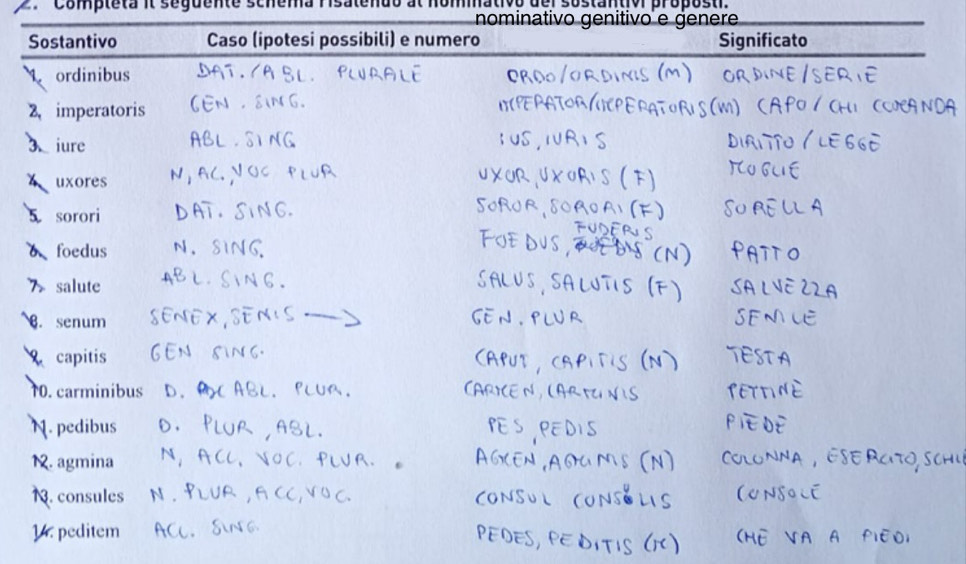 2. Completa il seguente schema risalendo al nominativo dei sostantivi proposti.
nominativo genitivo e genere
Sostantivo Caso (ipotesi possibili) e numero Significato
1. ordinibus DAT./ABL. PLURALE ORDO/ORDINIS (M) ORDINE/SERIE
2. imperatoris GEN. SING. IMPERATOR/IMPERATORIS (M) CAPO/CHI COMANDA
3. iure ABL. SING IUS, IURIS DIRITTO/LEGGE
4. uxores N, AC, VOC PLUR UXOR, UXORIS (F) MOGLIE
5. sorori DAT. SING. SOROR, SORORI (F) SORELLA
6. foedus N. SING. FOEDUS, FUDERIS (N) PATTO
7. salute ABL. SING. SALUS, SALUTIS (F) SALVEZZA
8. senum SENEX, SENIS → GEN. PLUR SENILE
9. capitis GEN SING. CAPUT, CAPITIS (N) TESTA
10. carminibus D. ABL. PLUR. CARMEN, CARMINIS PETTINE
11. pedibus D. PLUR, ABL. PES, PEDIS PIEDE
12. agmina N, ACC, VOC. PLUR. AGMEN, AGMINIS (N) COLONNA, ESERCITO, SCHIE
13. consules N. PLUR, ACC, VOC. CONSUL CONSULIS CONSOLE
14. peditem ACC. SING. PEDES, PEDITIS (M) CHE VA A PIEDI